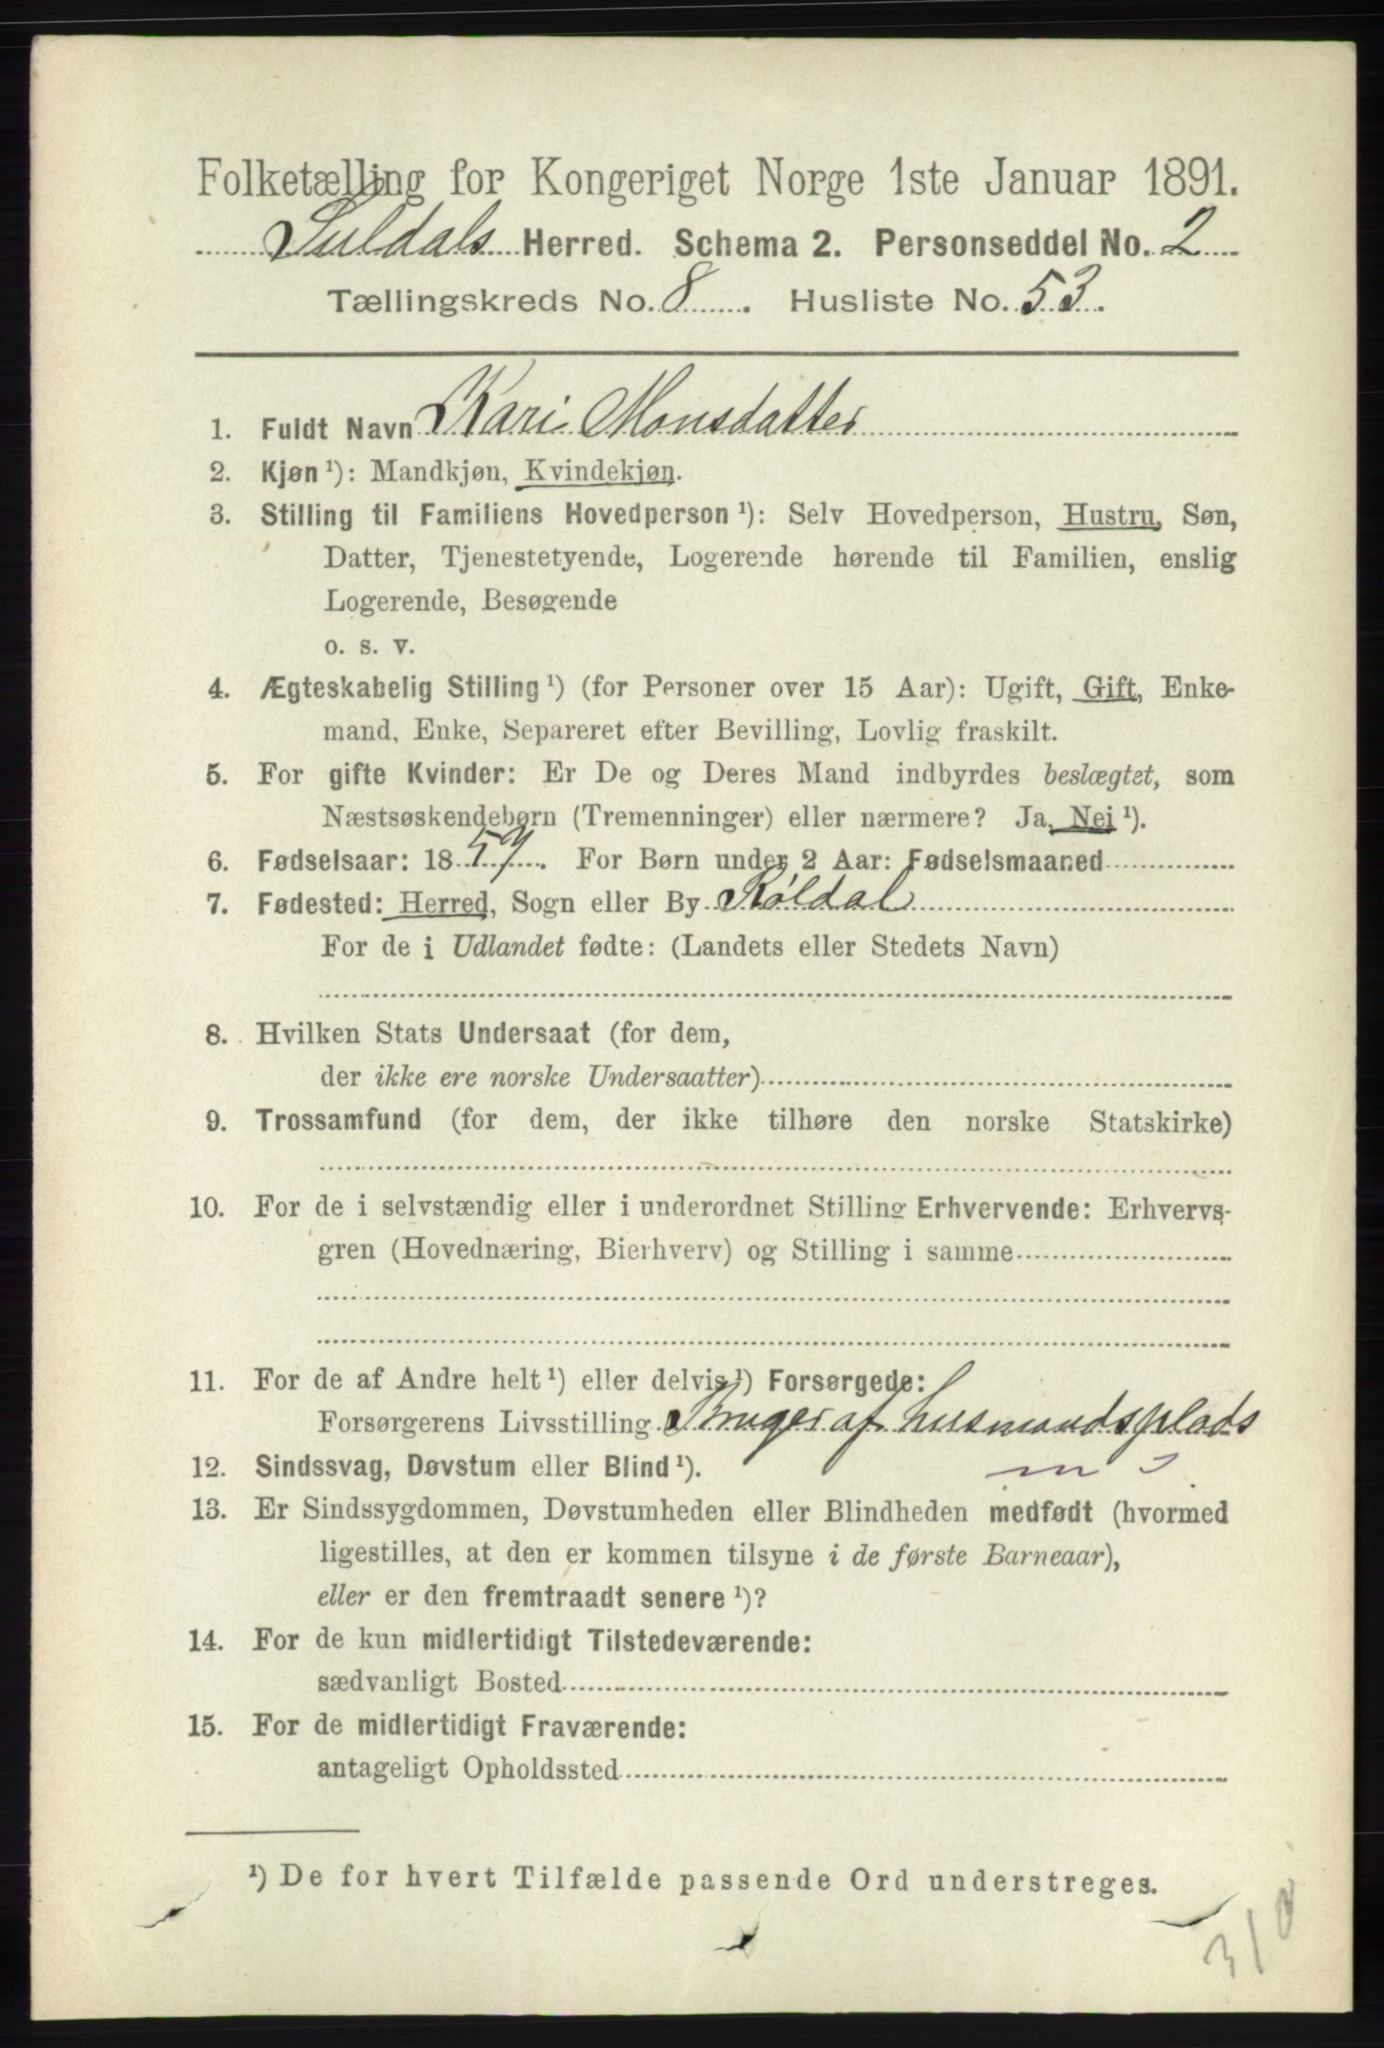 Folketælling for Kongeriget Norge 1ste Januar 1891.
Suldals Herred. Schema 2. Personseddel No. 2
Tællingskreds No. 8. Husliste No. 53.
1. Fuldt Navn Kari Monsdatter
2. Kjøn ¹): Mandkjøn, Kvindekjøn.
3. Stilling til Familiens Hovedperson ¹): Selv Hovedperson, Hustru, Søn,
Datter, Tjenestetyende, Logerende hørende til Familien, enslig
Logerende, Besøgende
o. s. v.
4. Ægteskabelig Stilling ¹) (for Personer over 15 Aar): Ugift, Gift, Enke-
mand, Enke, Separeret efter Bevilling, Lovlig fraskilt.
5. For gifte Kvinder: Er De og Deres Mand indbyrdes beslægtet, som
Næstsøskendebørn (Tremenninger) eller nærmere? Ja, Nei ¹).
6. Fødselsaar: 1857. For Børn under 2 Aar: Fødselsmaaned
7. Fødested: Herred, Sogn eller By Røldal
For de i Udlandet fødte: (Landets eller Stedets Navn)
8. Hvilken Stats Undersaat (for dem,
der ikke ere norske Undersaatter)
9. Trossamfund (for dem, der ikke tilhøre den norske Statskirke)
10. For de i selvstændig eller i underordnet Stilling Erhvervende: Erhvervs-
gren (Hovednæring, Bierhverv) og Stilling i samme
11. For de af Andre helt ¹) eller delvis ¹) Forsørgede:
Forsørgerens Livsstilling Bruger af husmandsplads
12. Sindssvag, Døvstum eller Blind ¹).
13. Er Sindssygdommen, Døvstumheden eller Blindheden medfødt (hvormed
ligestilles, at den er kommen tilsyne i de første Barneaar),
eller er den fremtraadt senere ¹)?
14. For de kun midlertidigt Tilstedeværende:
sædvanligt Bosted
15. For de midlertidigt Fraværende:
antageligt Opholdssted
¹) De for hvert Tilfælde passende Ord understreges.
310